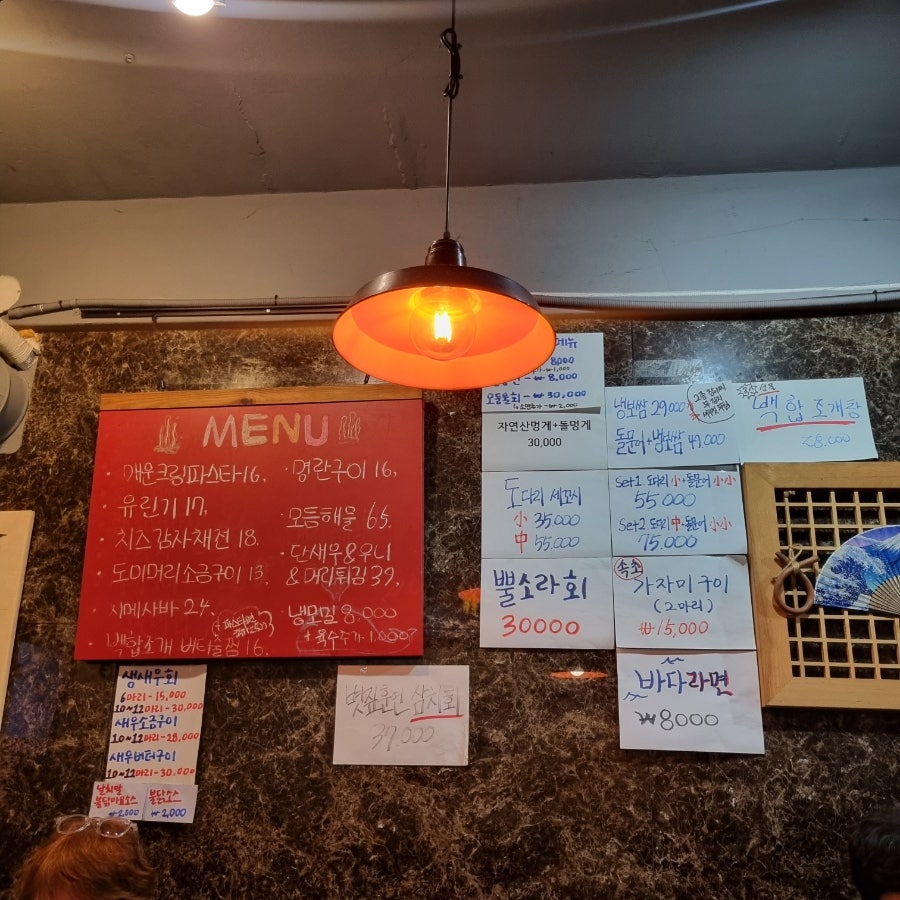 MENU
· 매운크림파스타 16.
· 유린기 17.
· 치즈감자채전 18.
· 도미머리소금구이 13.
· 시메사바 24.
· 백합조개 버터술찜 16.
· 명란구이 16.
모듬해물 65.
단새우&우니
& 머리튀김 39.
냉모밀 8.000
+ 육수추가 1.000
생새우회
6마리-15,000
10~12마리-30,000
새우소금구이
10~12마리-28,000
새우버터구이
10~12마리-30.000
날치알
불닭마요소스
₩2,000
불닭소스
₩2,000
볏짚훈연 삼치회
37.000
메뉴
8000
₩1,000
₩8.000
모둠물회 - ₩30,000
₩2,000
자연산멍게+돌멍게
30,000
냉보쌈 29,000
돌문어+냉보쌈 49,000
백합조개탕
28,000
도다리 세꼬시
小 35000
中 55,000
Set1 도다리小+돌문어 小小
55000
Set2 도다리中+돌문어 小小
75.000
뿔소라회
30000
속초
가자미구이
(2마리)
₩15,000
바다라면
₩8000